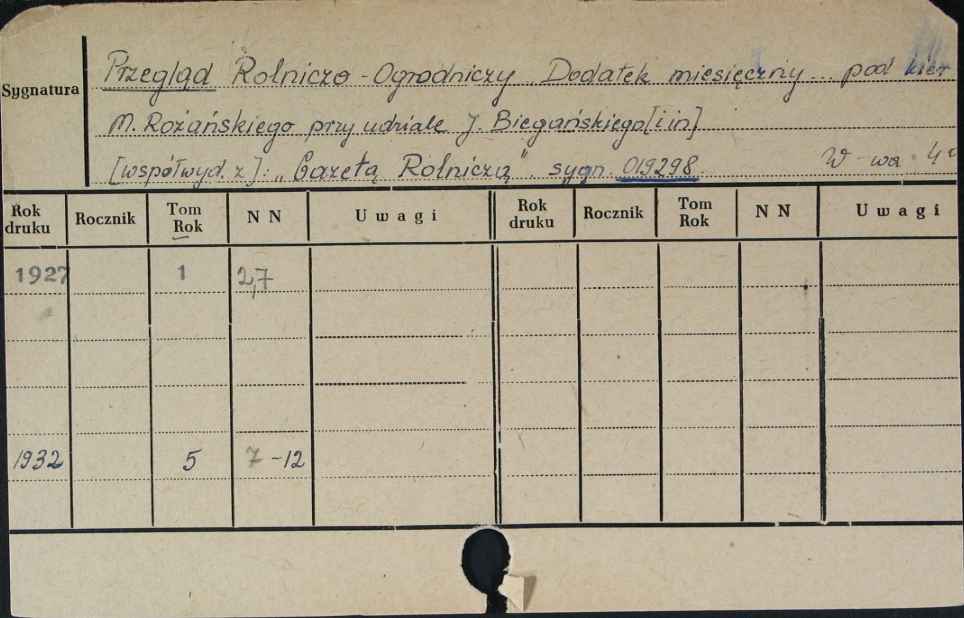 Przegląd Rolniczo-Ogrodniczy. Dodatek miesięczny... pod kier
Sygnatura
M. Rożańskiego przy udziale J. Biegańskiego [i in]
[współwyd. z]: „Gazetą Rolniczą" sygn. 019298. W-wa 4°
Rok druku Rocznik Tom Rok NN Uwagi Rok druku Rocznik Tom Rok NN Uwagi
1927 1 2,7
1932 5 7-12